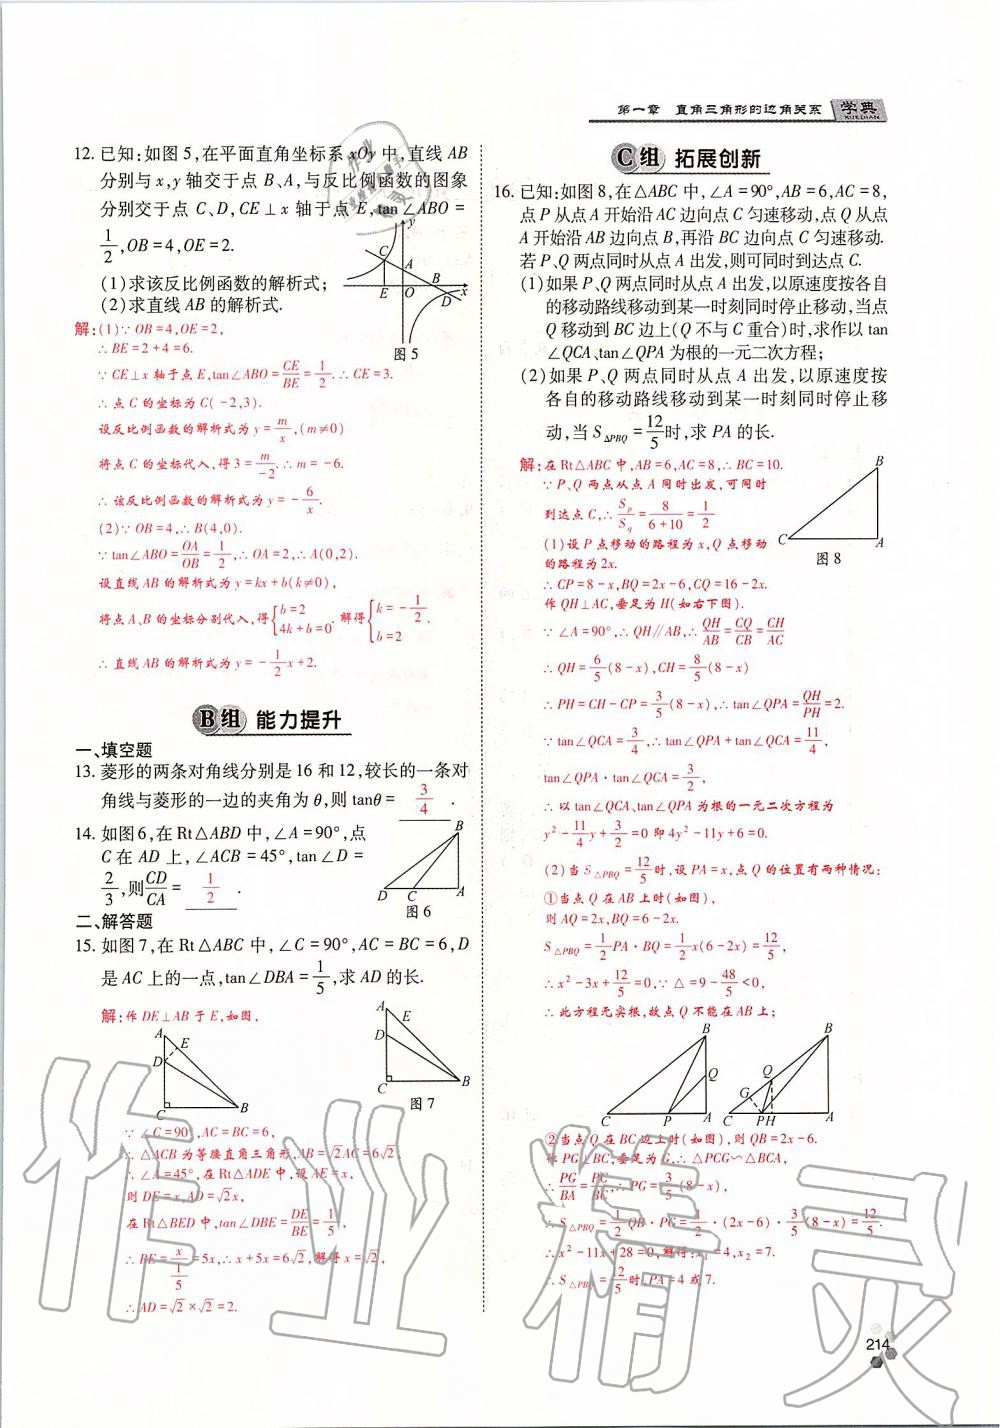 第一章 直角三角形的边角关系 学典
XUEDIAN
12. 已知:如图5,在平面直角坐标系xOy中,直线AB
分别与x,y轴交于点B、A,与反比例函数的图象
分别交于点C、D,CE⊥x轴于点E,tan∠ABO=
1/2,OB=4,OE=2.
(1)求该反比例函数的解析式;
(2)求直线AB的解析式.
y
C A B
E O D x
图5
解:(1)∵OB=4,OE=2,
∴BE=2+4=6.
∵CE⊥x轴于点E,tan∠ABO=CE/BE=1/2.∴CE=3.
∴点C的坐标为C(-2,3).
设反比例函数的解析式为y=m/x,(m≠0)
将点C的坐标代入,得3=m/-2.∴m=-6.
∴该反比例函数的解析式为y=-6/x.
(2)∵OB=4,∴B(4,0).
∵tan∠ABO=OA/OB=1/2,∴OA=2,∴A(0,2).
设直线AB的解析式为y=kx+b(k≠0),
将点A、B的坐标分别代入,得{b=2 4k+b=0.解得{k=-1/2 b=2.
∴直线AB的解析式为y=-1/2x+2.
B组 能力提升
一、填空题
13. 菱形的两条对角线分别是16和12,较长的一条对
角线与菱形的一边的夹角为θ,则tanθ= 3/4 .
14. 如图6,在Rt△ABD中,∠A=90°,点
C在AD上,∠ACB=45°,tan∠D=
2/3,则CD/CA= 1/2 .
B
D C A
图6
二、解答题
15. 如图7,在Rt△ABC中,∠C=90°,AC=BC=6,D
是AC上的一点,tan∠DBA=1/5,求AD的长.
A E
D
C B
图7
解:作DE⊥AB于E,如图,
A E
D
C B
∵∠C=90°,AC=BC=6,
∴△ACB为等腰直角三角形,AB=√2AC=6√2,
∴∠A=45°,在Rt△ADE中,设AE=x,
则DE=x,AD=√2x,
在Rt△BED中,tan∠DBE=DE/BE=1/5,
∴BE=x/(1/5)=5x,∴x+5x=6√2,解得x=√2,
∴AD=√2×√2=2.
C组 拓展创新
16. 已知:如图8,在△ABC中,∠A=90°,AB=6,AC=8,
点P从点A开始沿AC边向点C匀速移动,点Q从点
A开始沿AB边向点B,再沿BC边向点C匀速移动.
若P、Q两点同时从点A出发,则可同时到达点C.
(1)如果P、Q两点同时从点A出发,以原速度按各自
的移动路线移动到某一时刻同时停止移动,当点
Q移动到BC边上(Q不与C重合)时,求作以tan
∠QCA、tan∠QPA为根的一元二次方程;
(2)如果P、Q两点同时从点A出发,以原速度按
各自的移动路线移动到某一时刻同时停止移
动,当S△PBQ=12/5时,求PA的长.
B
C A
图8
解:在Rt△ABC中,AB=6,AC=8,∴BC=10.
∵P、Q两点从点A同时出发,可同时
到达点C,∴Sp/Sq=8/(6+10)=1/2
(1)设P点移动的路程为x,Q点移动
的路程为2x.
∴CP=8-x,BQ=2x-6,CQ=16-2x.
作QH⊥AC,垂足为H(如右下图).
∵∠A=90°,∴QH∥AB,∴QH/AB=CQ/CB=CH/AC
∴QH=6/5(8-x),CH=8/5(8-x)
∴PH=CH-CP=3/5(8-x),∴tan∠QPA=QH/PH=2.
∵tan∠QCA=3/4,∴tan∠QPA+tan∠QCA=11/4,
tan∠QPA·tan∠QCA=3/2,
∴以tan∠QCA、tan∠QPA为根的一元二次方程为
y²-11/4y+3/2=0即4y²-11y+6=0.
(2)当S△PBQ=12/5时,设PA=x,点Q的位置有两种情况:
①当点Q在AB上时(如图),
则AQ=2x,BQ=6-2x.
S△PBQ=1/2PA·BQ=1/2x(6-2x)=12/5,
∴x²-3x+12/5=0,∵△=9-48/5<0,
∴此方程无实根,故点Q不能在AB上;
B
Q
C P A
B
Q
G
C PH A
②当点Q在BC边上时(如图),则QB=2x-6.
作PG⊥BC,垂足为G,∴△PCG∽△BCA,
∴PG/BA=PC/BC,∴PG=3/5(8-x),
∴S△PBQ=1/2QB·PG=1/2·(2x-6)·3/5(8-x)=12/5
∴x²-11x+28=0,解得:x₁=4,x₂=7.
∴S△PBQ=12/5时,PA=4或7.
214
作业精灵